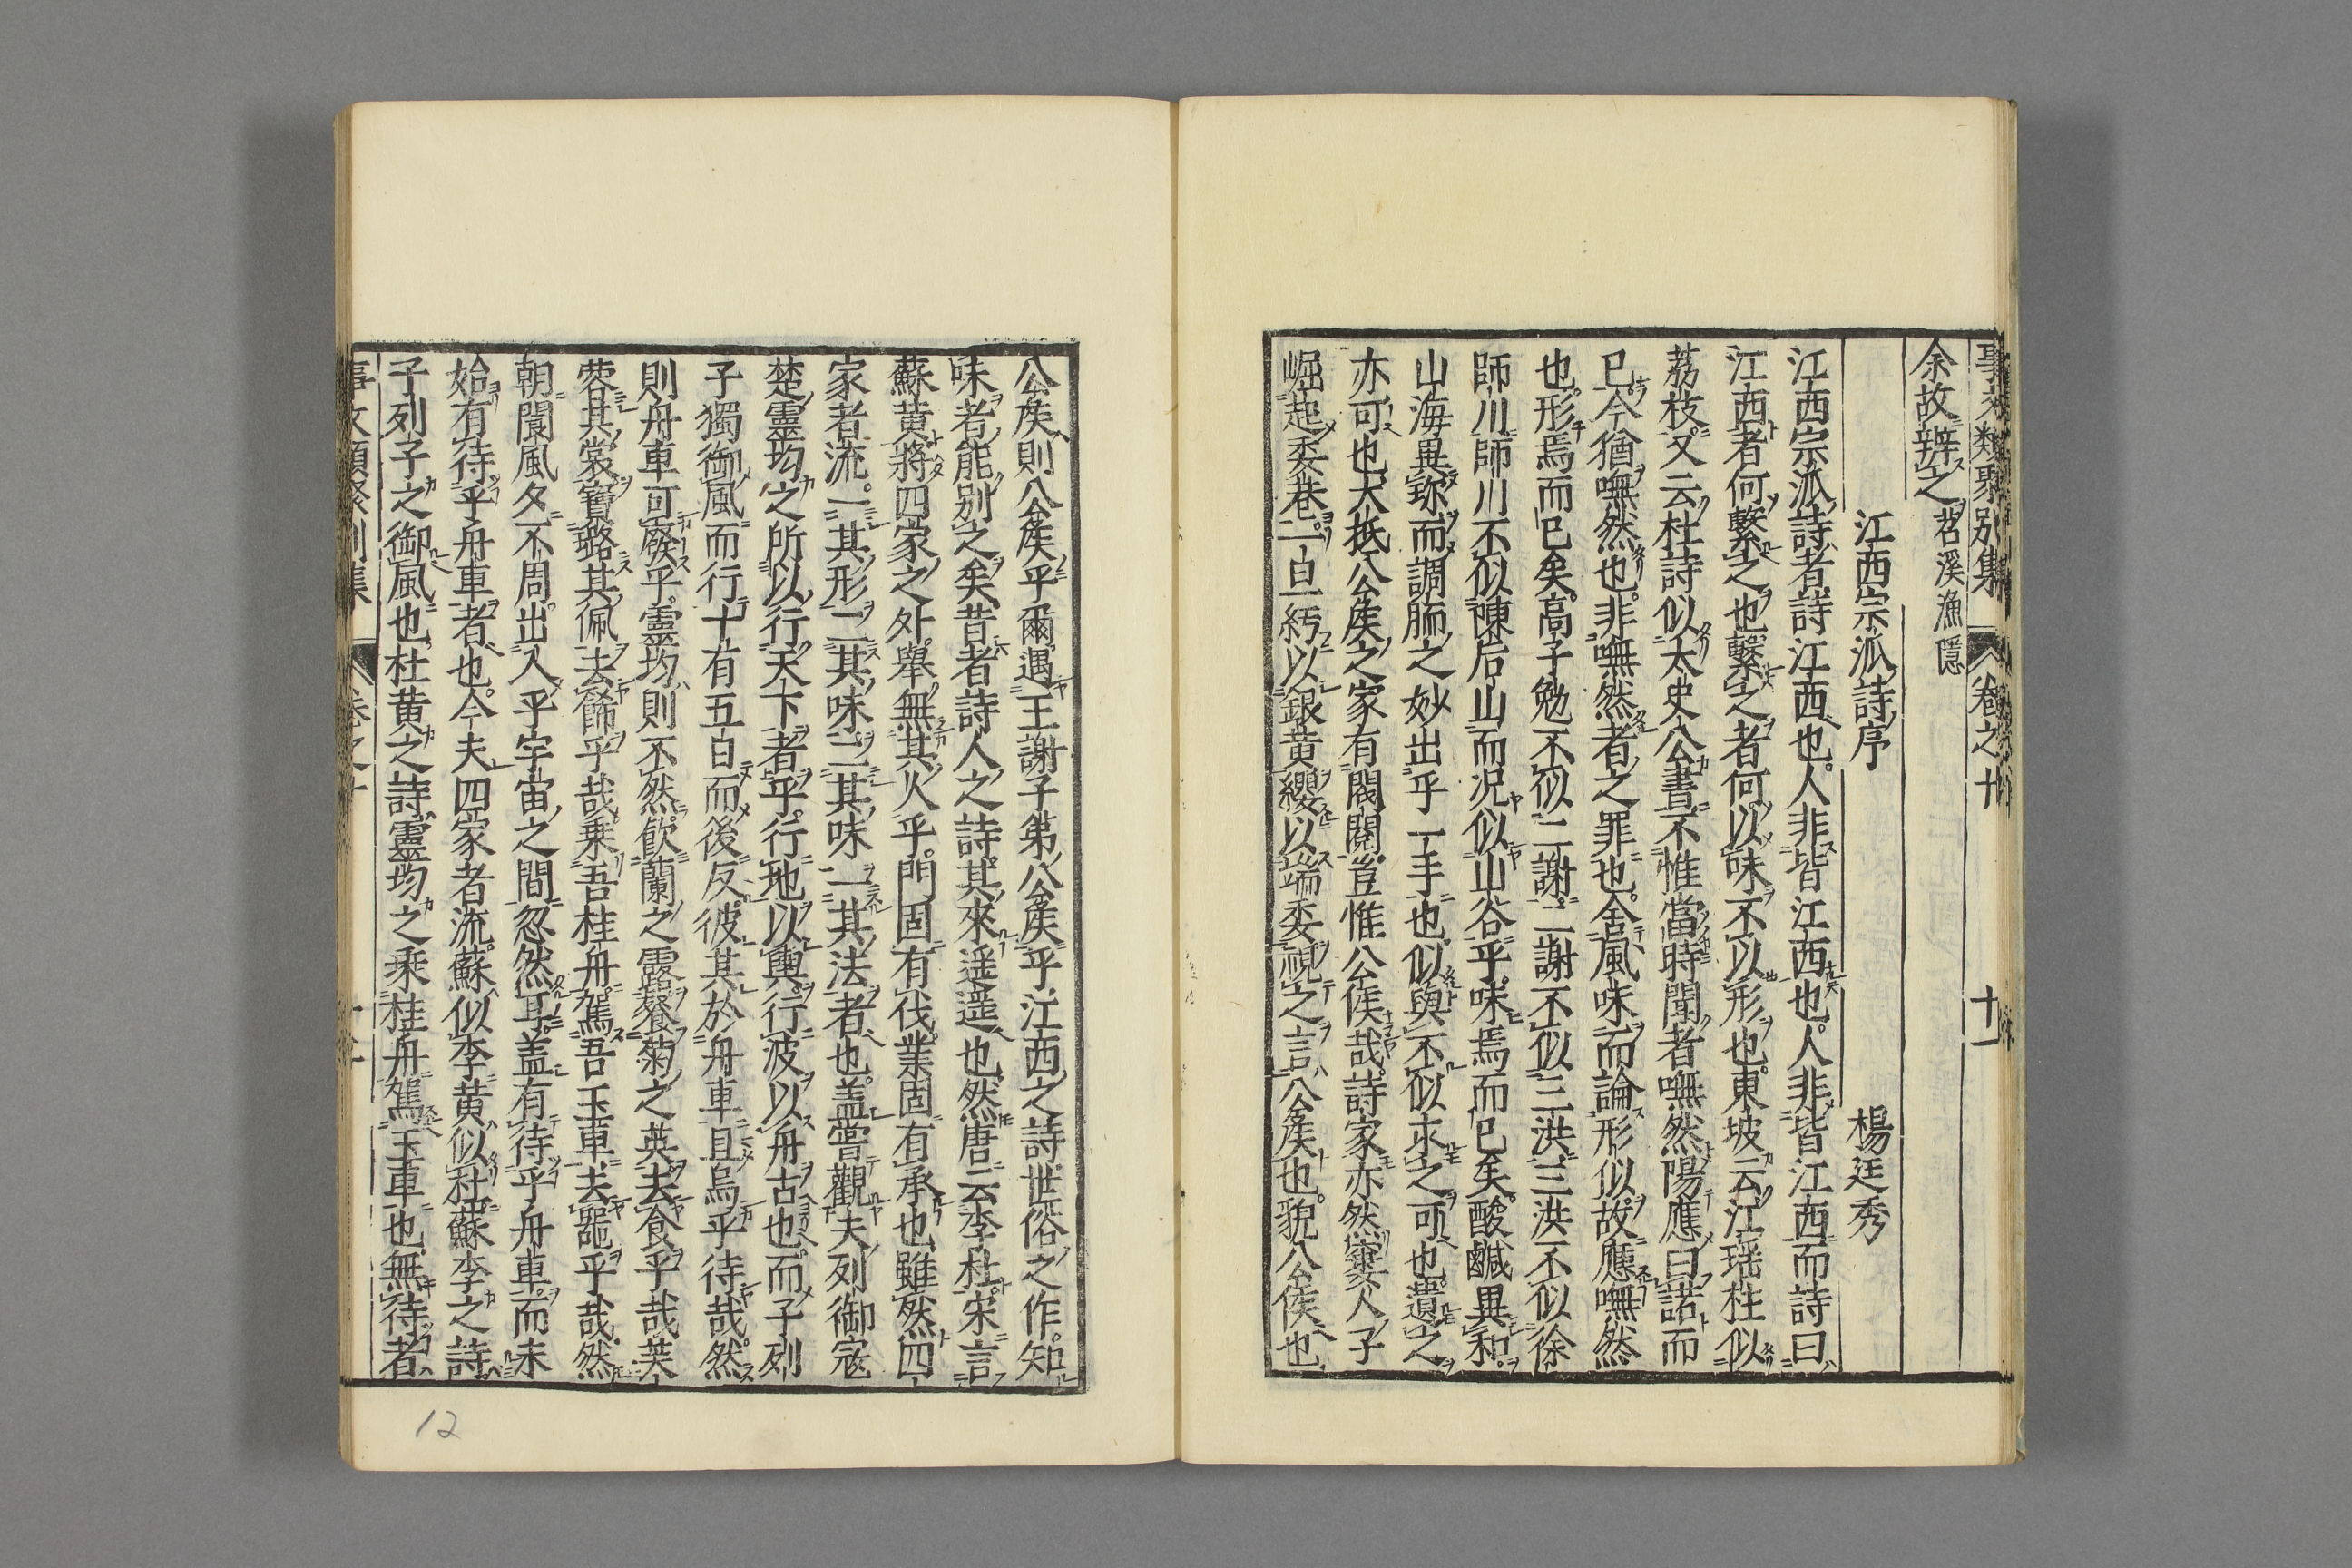 事文類聚別集 卷之十 十一
余故辨之 苕溪漁隱
江西宗派詩序 楊廷秀
江西宗派詩者詩江西也人非皆江西也人非皆江西而詩曰
江西者何繫之也繫之者何以味不以形也東坡云江瑶柱似
荔枝又云杜詩似太史公書不惟當時聞者嘸然陽應曰諾而
已今猶嘸然也非嘸然者之罪也舍風味而論形似故應嘸然
也形焉而已矣高子勉不似二謝二謝不似三洪三洪不似徐
師川師川不似陳后山而况似山谷乎味焉而已矣酸鹹異和
山海異珎而調胹之妙出乎一手也似與不似求之可也遺之
亦可也大抵公侯之家有閥閱豈惟公侯哉詩家亦然窶人子
崛起委巷一旦紆以銀黄纓以端委視之言公侯也貌公侯也
公侯則公侯乎爾遇王謝子第公侯乎江西之詩世俗之作知
味者能别之矣昔者詩人之詩其來遥遥也然唐云李杜宋言
蘇黄將四家之外舉無其人乎門固有伐業固有承也雖然四
家者流一其形二其味二其味一其法者也盖嘗觀夫列御寇
楚靈均之所以行天下者乎行地以輿行波以舟古也而子列
子獨御風而行十有五日而後反彼其於舟車且烏乎待哉然
則舟車可廢乎靈均則不然飲蘭之露餐菊之英去食乎哉芙
蓉其裳寶璐其佩去飾乎哉乘吾桂舟駕吾玉車去噐乎哉然
朝閬風夕不周出入乎宇宙之間忽然耳盖有待乎舟車而未
始有待乎舟車者也今夫四家者流蘇似李黄似杜蘇李之詩
子列子之御風也杜黄之詩靈均之乘桂舟駕玉車也無待者
12